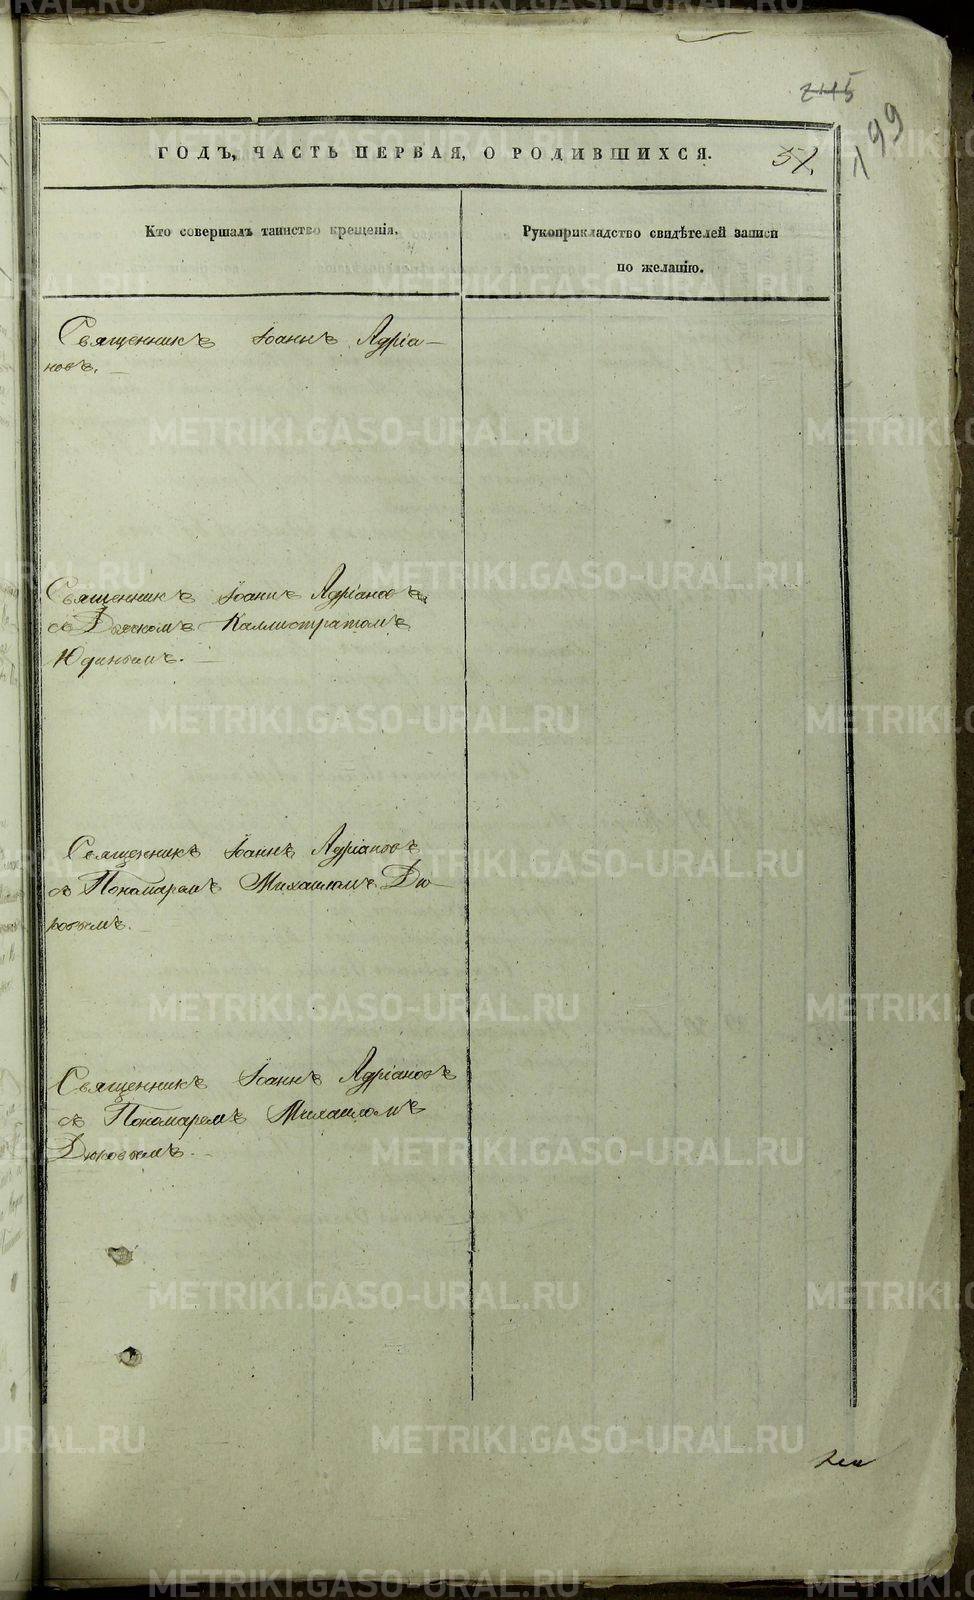 245
199
ГОДЪ, ЧАСТЬ ПЕРВАЯ, О РОДИВШИХСЯ.
51.
Кто совершалъ таинство крещенія.
Рукоприкладство свидѣтелей записи
по желанію.
Священникъ Іоаннъ Адріа-
новъ.
Священникъ Іоаннъ Адріановъ
съ Дьячкомъ Каллистратомъ
Юдинымъ.
Священникъ Іоаннъ Адріановъ
съ Пономаремъ Михаиломъ Дю-
ковымъ.
Священникъ Іоаннъ Адріановъ
съ Пономаремъ Михаиломъ
Дюковымъ.
METRIKI.GASO-URAL.RU